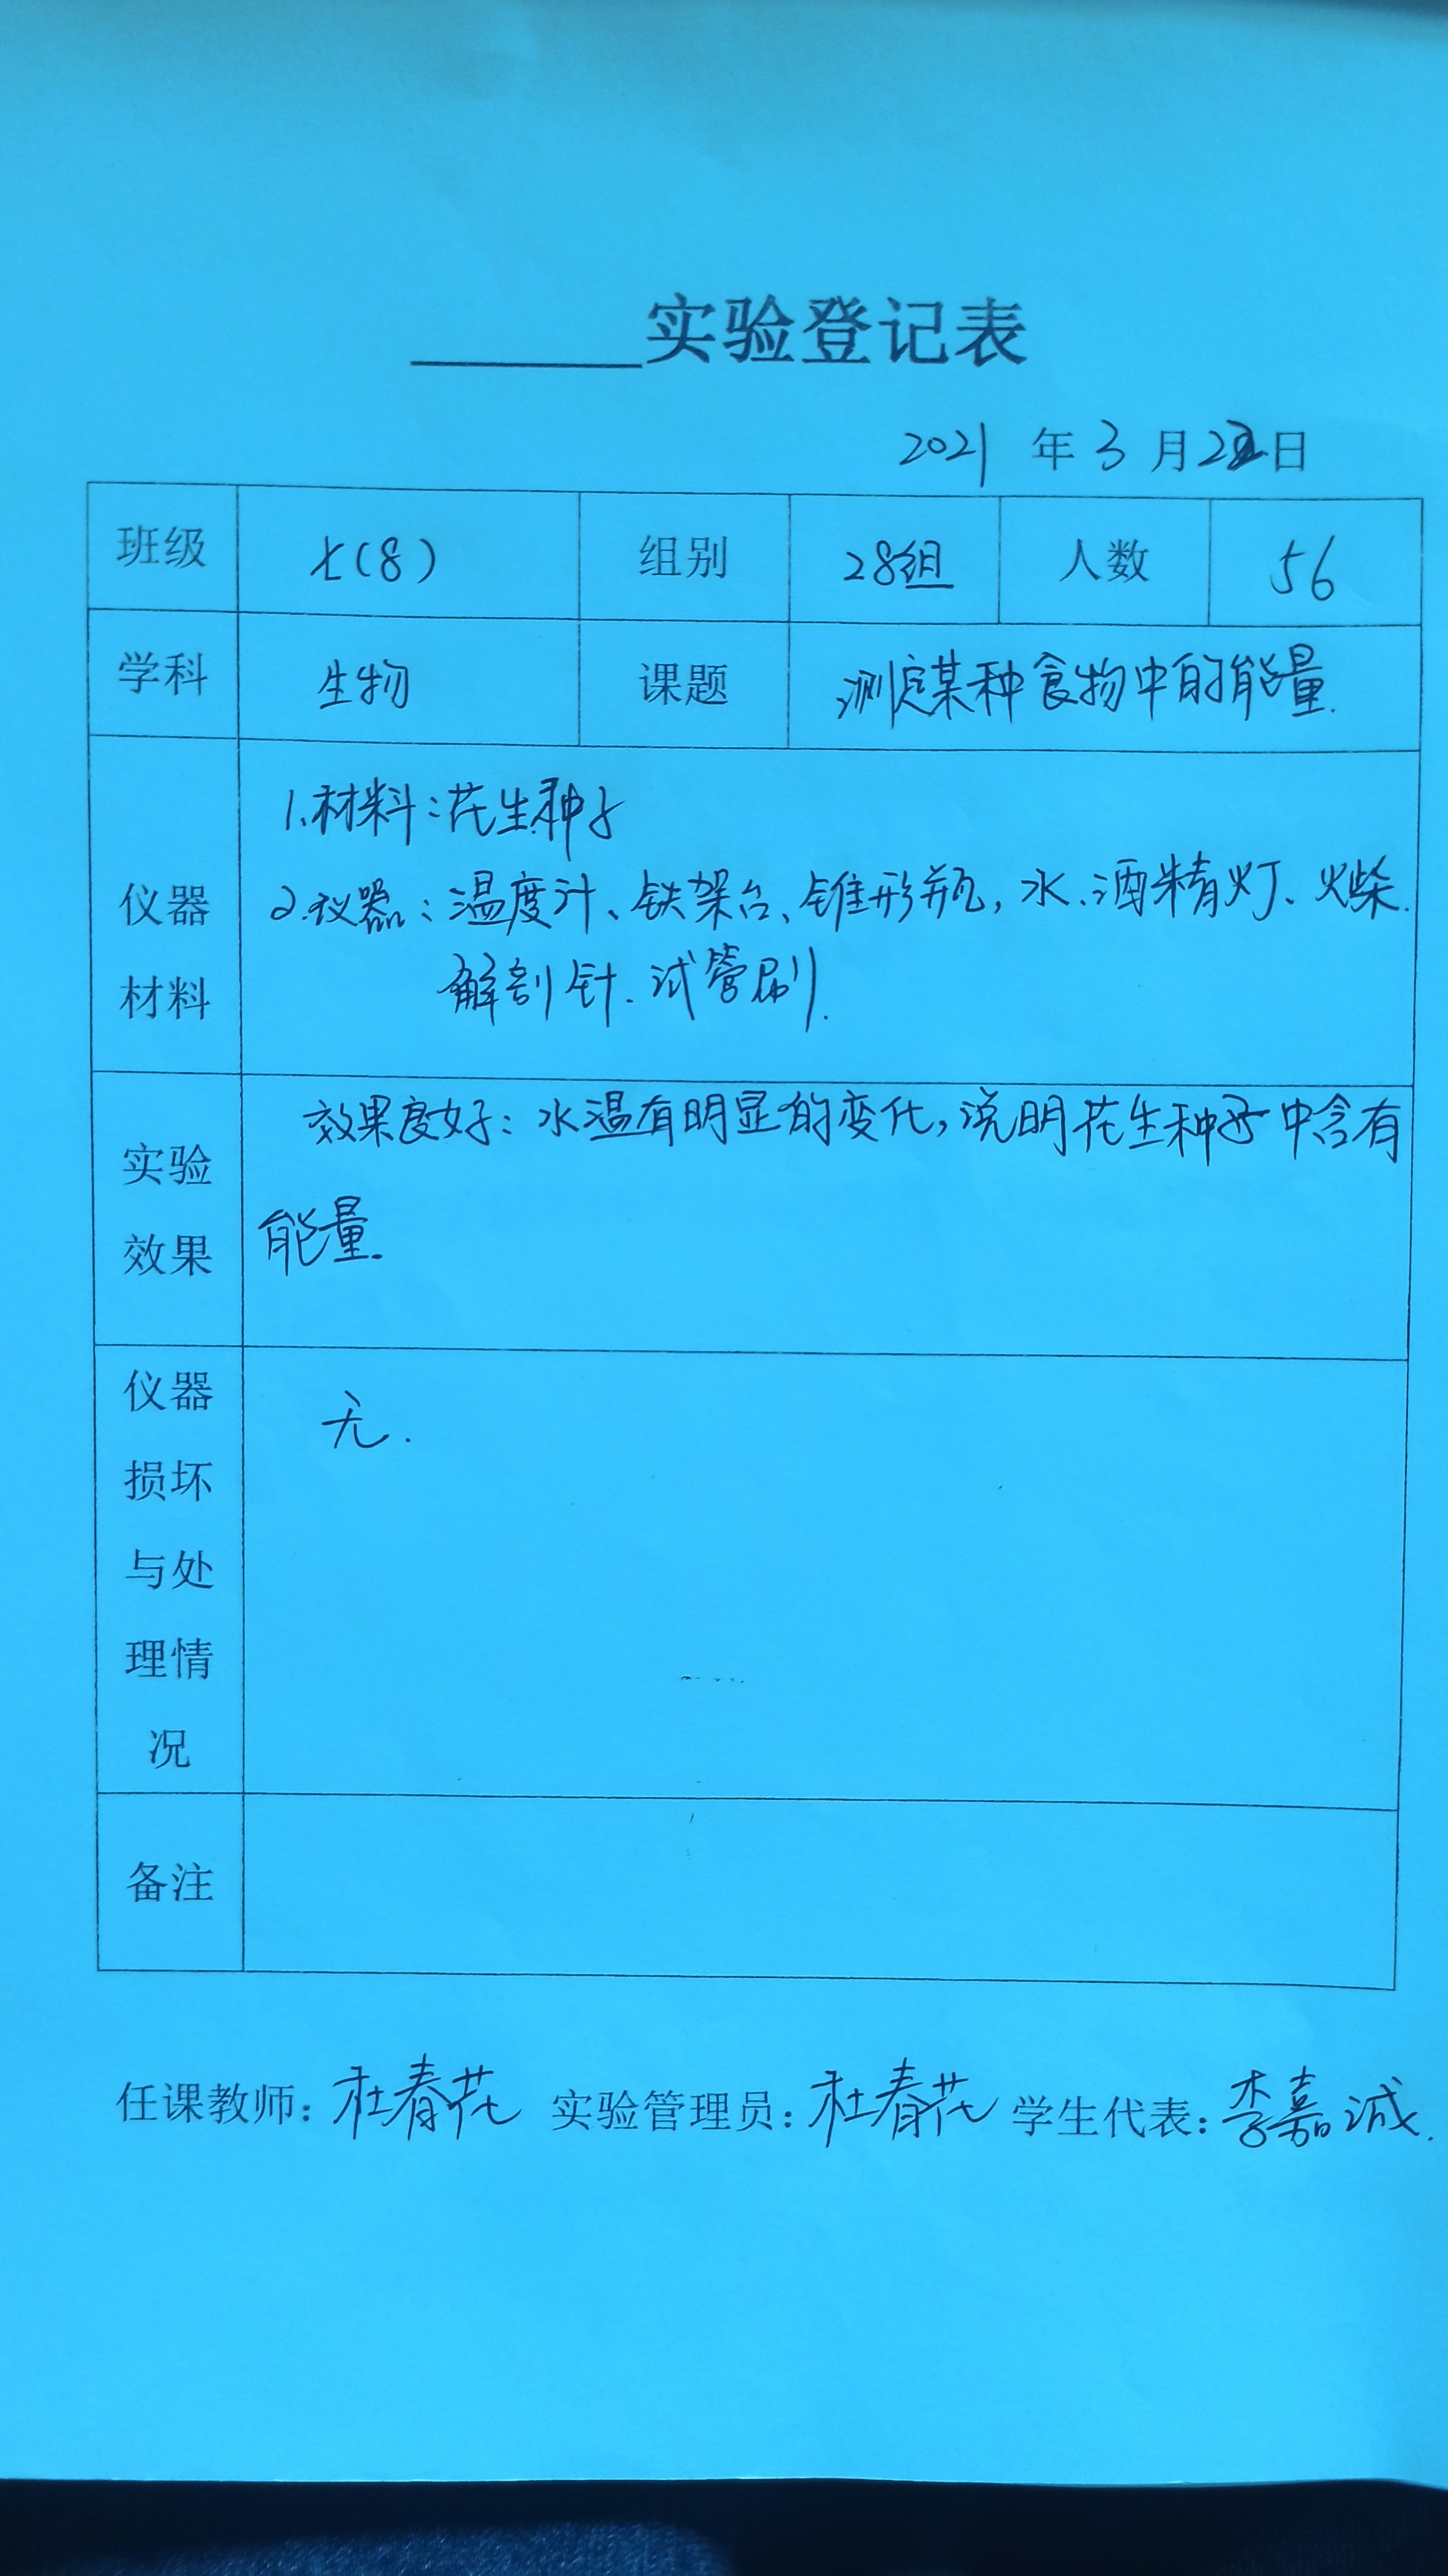 实验登记表
2021 年 3 月 22 日
班级 七(8) 组别 28组 人数 56
学科 生物 课题 测定某种食物中的能量.
仪器
材料
1.材料:花生种子
2.仪器:温度计、铁架台、锥形瓶,水、酒精灯、火柴.
解剖针.试管刷.
实验
效果
效果良好:水温有明显的变化,说明花生种子中含有
能量.
仪器
损坏
与处
理情
况
无.
备注
任课教师:杜春花 实验管理员:杜春花 学生代表:李嘉诚.